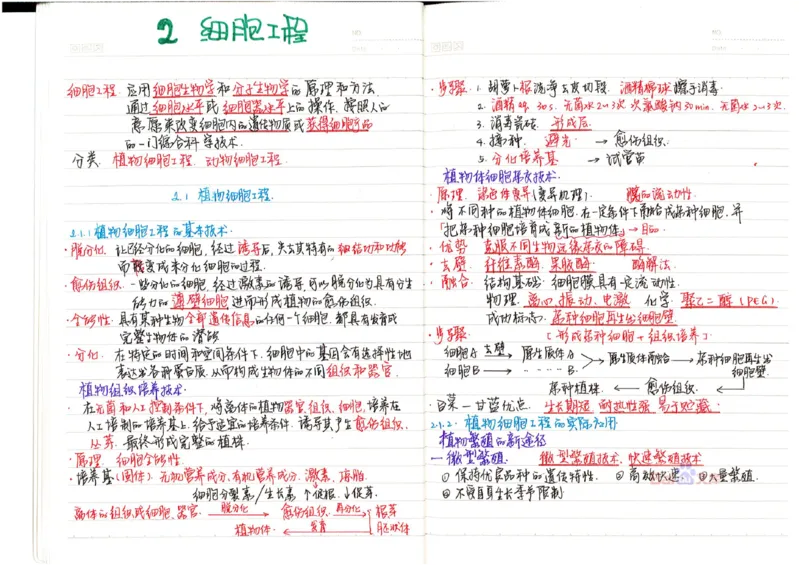 2 细胞工程
细胞工程 应用细胞生物学和分子生物学的原理和方法
通过细胞水平或细胞器水平上的操作，按照人的
意愿来改变细胞内的遗传物质或获得细胞产品
的一门综合科学技术.
分类 植物细胞工程. 动物细胞工程.
2.1 植物细胞工程.
2.1.1 植物细胞工程的基本技术
·脱分化. 让已经分化的细胞，经过诱导后，失去其特有的细结构和功能
而转变成未分化细胞的过程.
·愈伤组织. 一些分化的细胞，经过激素的诱导，可以脱分化为具有分生
能力的薄壁细胞 进而形成植物的愈伤组织.
·全能性. 具有某种生物全部遗传信息的任何一个细胞，都具有发育成
完整生物体的潜能
·分化. 在特定的时间和空间条件下，细胞中的基因会有选择性地
表达出各种蛋白质，从而构成生物体的不同组织和器官.
植物组织培养技术.
·在无菌和人工控制条件下，将离体的植物器官.组织.细胞.培养在
人工培制的培养基上，给予适宜的培养条件. 诱导其产生愈伤组织.
丛芽. 最终形成完整的植株.
·原理 细胞全能性.
·培养基(固体). 无机营养成分、有机营养成分、激素、琼脂
细胞分裂素/生长素 ↑促根. ↓促芽.
离体的组织或细胞、器官. 脱分化→ 愈伤组织. 再分化→ 根芽
植物体. ← 发育 胚状体
·步骤 1. 胡萝卜根洗净去皮切段. 酒精棉球擦手消毒
2. 酒精 30s. 无菌水2~3次 次氯酸钠30min. 无菌水2~3次.
3. 消毒瓷砖. 形成层.
4. 接种. 避光 → 愈伤组织.
5. 分化培养基 → 试管苗
植物体细胞杂交技术.
·原理. 染色体变异(变异机理). 膜的流动性.
·将不同种的植物体细胞. 在一定条件下融合成杂种细胞，并
把杂种细胞培育成新的植物体. → 目的
·优势 克服不同生物远缘杂交的障碍.
·去壁. 纤维素酶. 果胶酶. 酶解法.
·融合. 结构基础 细胞膜具有一定流动性.
物理. 离心.振动.电激 化学 聚乙二醇(PEG)
成功标志. 杂种细胞再生出细胞壁
·步骤 [形成杂种细胞+组织培养]
细胞A 去壁→ 原生质体A → 原生质体融合 → 杂种细胞再生出
细胞B → ····· B. 细胞壁
杂种植株. ← 愈伤组织. ←
·白菜—甘蓝优点. 生长期短 耐热性强 易于贮藏.
2.1.2. 植物细胞工程的实际应用
植物繁殖的新途径
一 微型繁殖. 微型繁殖技术、快速繁殖技术
① 保持优良品种的遗传特性. ② 高效快速 ③大量繁殖.
④ 不受自身生长季节限制